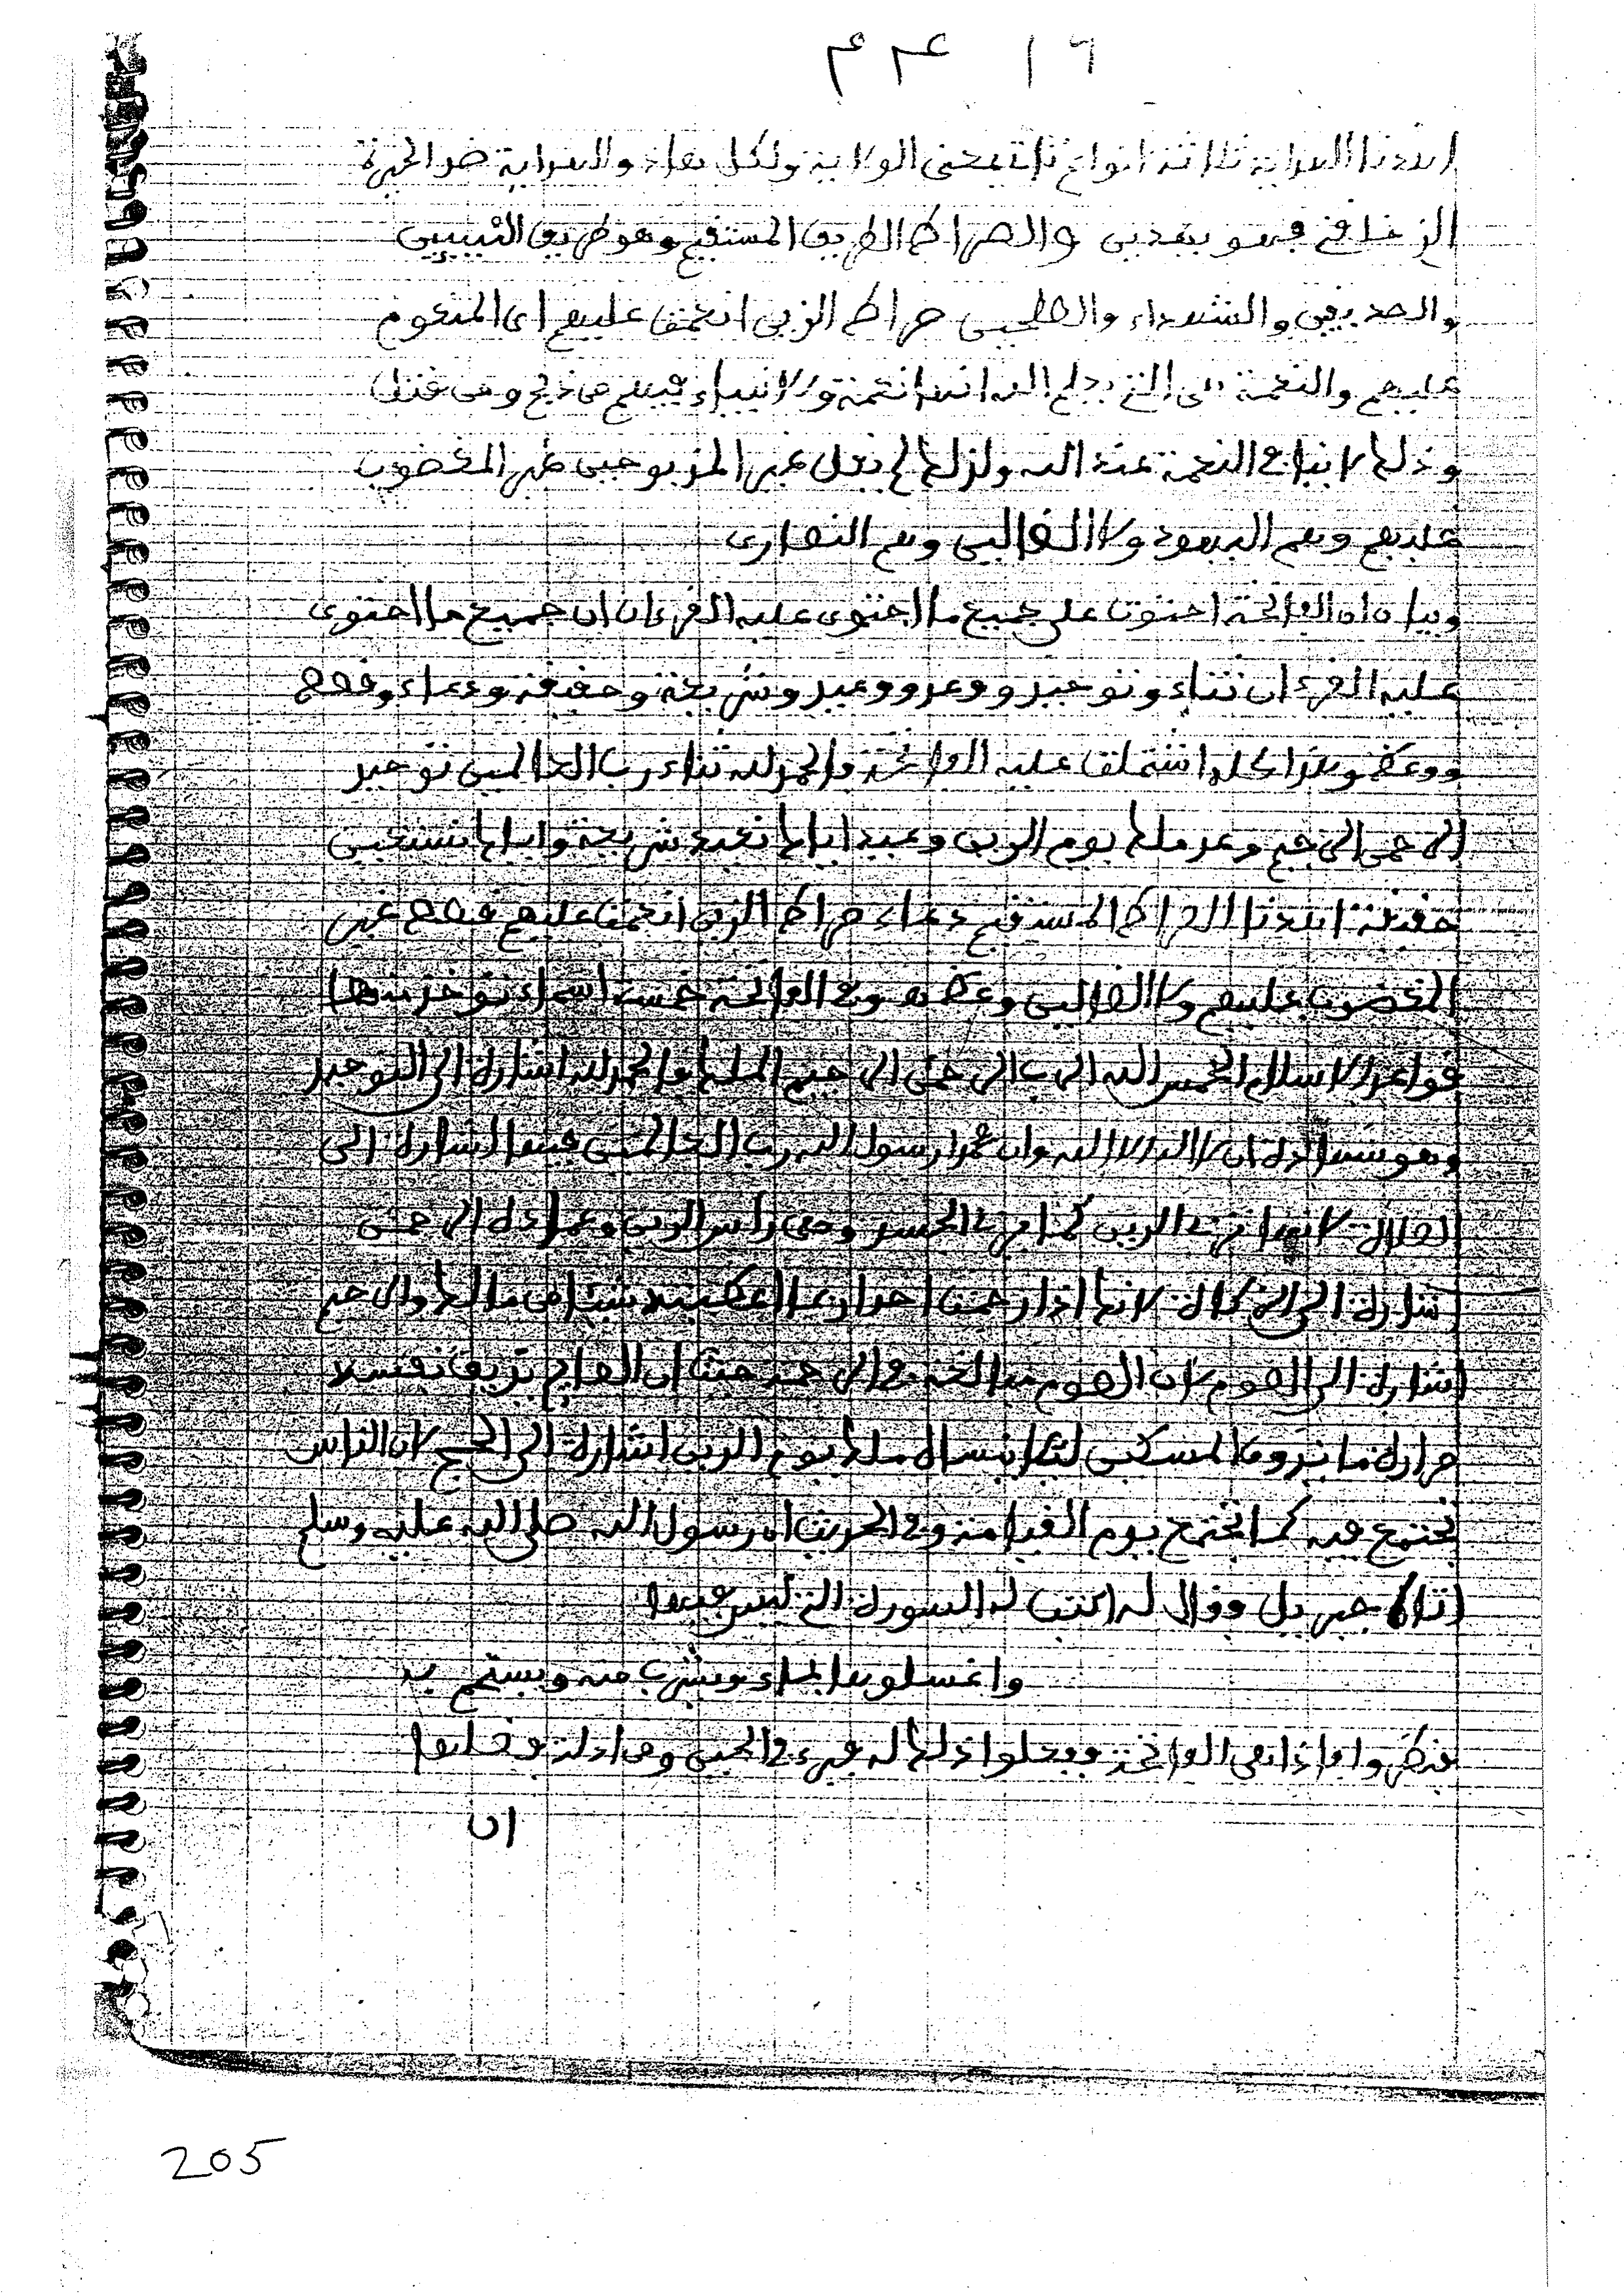 اهدنا الهداية ثلاثة انواع تاتي بمعنى الولاية ولكل هاد والهداية ضد الحيرة
الذي خلقني فهو يهدين والصراط الطريق المستقيم وهو طريق النبيين
والصديقين والشهداء والصلحين صراط الذين انعمت عليهم اي المنعوم
عليهم والنعمة هي التي يعلم الله انها نعمة ولانبياء فيهم من ذبح ومن قتل
وذلك لا ينافي النعمة عند الله ولذلك لم يقل غير المذبوحين غير المغضوب
عليهم وهم اليهود ولا الضالين وهم النصارى
وبيان ان الفاتحة احتوت على جميع ما احتوى عليه القرءان ان جميع ما احتوى
عليه القرءان ثناء وتوحيد ووعد ووعيد وشريعة وحقيقة ودعاء وقصص
ووعظ وهذا كله اشتملت عليه الفاتحة فالحمد لله ثناء رب العالمين توحيد
الرحمن الرحيم وعد ملك يوم الدين وعيد اياك نعبد شريعة واياك نستعين
حقيقة اهدنا الصراط المستقيم دعاء صراط الذين انعمت عليهم قصص غير
المغضوب عليهم ولا الضالين وعظ وفي الفاتحة خمسة اسماء توخذ منها
قواعد الاسلام الخمس الله الرب الرحمن الرحيم الملك فالحمد لله اشارة الى التوحيد
وهو شهادة ان لا اله الا الله وان محمدا رسول الله رب العالمين فيها اشارة الى
الصلاة لانها تربي الدين كما تربي الجسد وهي راس الدين وعماده الرحمن
اشارة الى الزكاة لانك اذا رحمت احدا تعطيه شيئا من مالك والرحيم
اشارة الى الصوم لان الصوم مبالغة في الرحمة حيث ان الصايم يذيق نفسه
حرارة ما يذوق المسكين ملك يوم الدين اشارة الى الحج لان الناس
تجتمع فيه كما تجتمع يوم القيامة وفي الحديث ان رسول الله صلى الله عليه وسلم
اتاه جبريل وقال له اكتب له السورة التي ليس فيها
واغسلوها بالماء ويشرب منه ويستحم به
فنظروا فاذا هي الفاتحة ففعلوا ذلك له فبرء في الحين ومن ادلة فضلها
ان
205